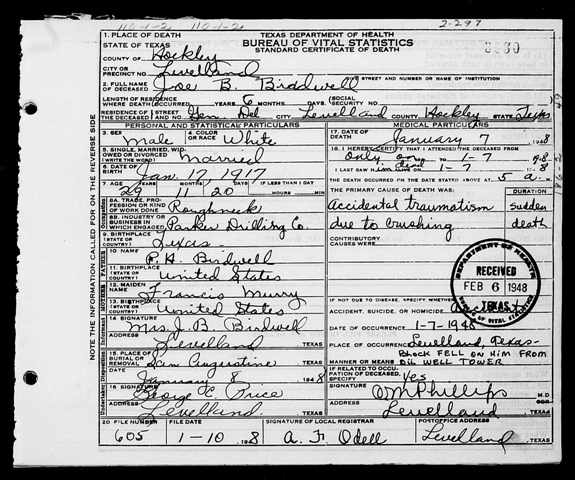 110-1-2 110-1-2 2-297
1. PLACE OF DEATH
STATE OF TEXAS
TEXAS DEPARTMENT OF HEALTH
BUREAU OF VITAL STATISTICS
STANDARD CERTIFICATE OF DEATH
COUNTY OF Hockley
CITY OR PRECINCT NO. Levelland
STREET AND NUMBER OR NAME OF INSTITUTION
2. FULL NAME OF DECEASED Joe B. Birdwell
LENGTH OF RESIDENCE WHERE DEATH OCCURRED YEARS 6 MONTHS DAYS SOCIAL SECURITY NO.
RESIDENCE OF THE DECEASED STREET AND NO. Gen. Del. CITY Levelland COUNTY Hockley STATE Texas
PERSONAL AND STATISTICAL PARTICULARS
MEDICAL PARTICULARS
3. SEX Male
4. COLOR OR RACE White
17. DATE OF DEATH January 7 1948
5. SINGLE, MARRIED, WIDOWED OR DIVORCED (WRITE THE WORD) Married
18. I HEREBY CERTIFY THAT I ATTENDED THE DECEASED FROM
only on 1-7 1948
6. DATE OF BIRTH Jan. 17, 1917
I LAST SAW HIM 1-7 1948
7. AGE YEARS MONTHS DAYS IF LESS THAN 1 DAY
29 11 20 HOURS MIN
THE DEATH OCCURRED ON THE DATE STATED ABOVE AT 5 a M
8A. TRADE, PROFESSION OR KIND OF WORK DONE Roughneck
THE PRIMARY CAUSE OF DEATH WAS: DURATION
Accidental traumatism sudden
due to crushing death
8B. INDUSTRY OR BUSINESS IN WHICH ENGAGED Parker Drilling Co.
CONTRIBUTORY CAUSES WERE:
9. BIRTHPLACE (STATE OR COUNTRY) Texas
10. NAME P. H. Birdwell
11. BIRTHPLACE (STATE OR COUNTRY) United States
DEPARTMENT OF HEALTH
RECEIVED
FEB 6 1948
TEXAS
BUREAU OF VITAL STATISTICS
12. MAIDEN NAME Francis Murry
13. BIRTHPLACE (STATE OR COUNTRY) United States
IF NOT DUE TO DISEASE, SPECIFY WHETHER
ACCIDENT, SUICIDE, OR HOMICIDE
14. SIGNATURE Mrs. J. B. Birdwell
DATE OF OCCURRENCE 1-7-1948
ADDRESS Levelland TEXAS
PLACE OF OCCURRENCE Levelland, Texas-
15. PLACE OF BURIAL OR REMOVAL San Augustine TEXAS
MANNER OR MEANS BLOCK FELL ON HIM FROM
OIL WELL TOWER
DATE January 8 1948
IF RELATED TO OCCUPATION OF DECEASED, SPECIFY Yes
16. SIGNATURE George C. Price
SIGNATURE W M Phillips M.D.
ADDRESS Levelland TEXAS
ADDRESS Levelland TEXAS
20. FILE NUMBER 605
FILE DATE 1-10-1948
SIGNATURE OF LOCAL REGISTRAR A. F. Odell
POSTOFFICE ADDRESS Levelland TEXAS
NOTE: THE INFORMATION CALLED FOR ON THE REVERSE SIDE